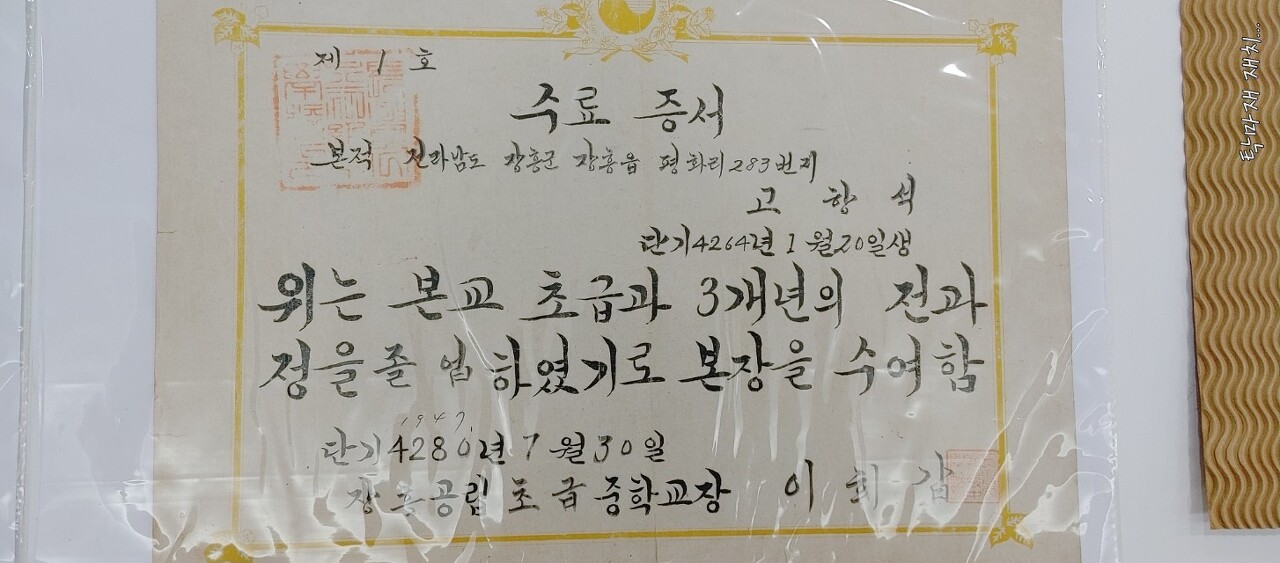 제 1 호
수료 증서
본적 전라남도 장흥군 장흥읍 평화리 283번지
고 항 석
단기4264년 1월20일생
위는 본교 초급과 3개년의 전과
정을 졸업하였기로 본장을 수여함
1947.
단기4280년 7월30일
장흥공립초급중학교장 이 회 갑
틱마재 재치...